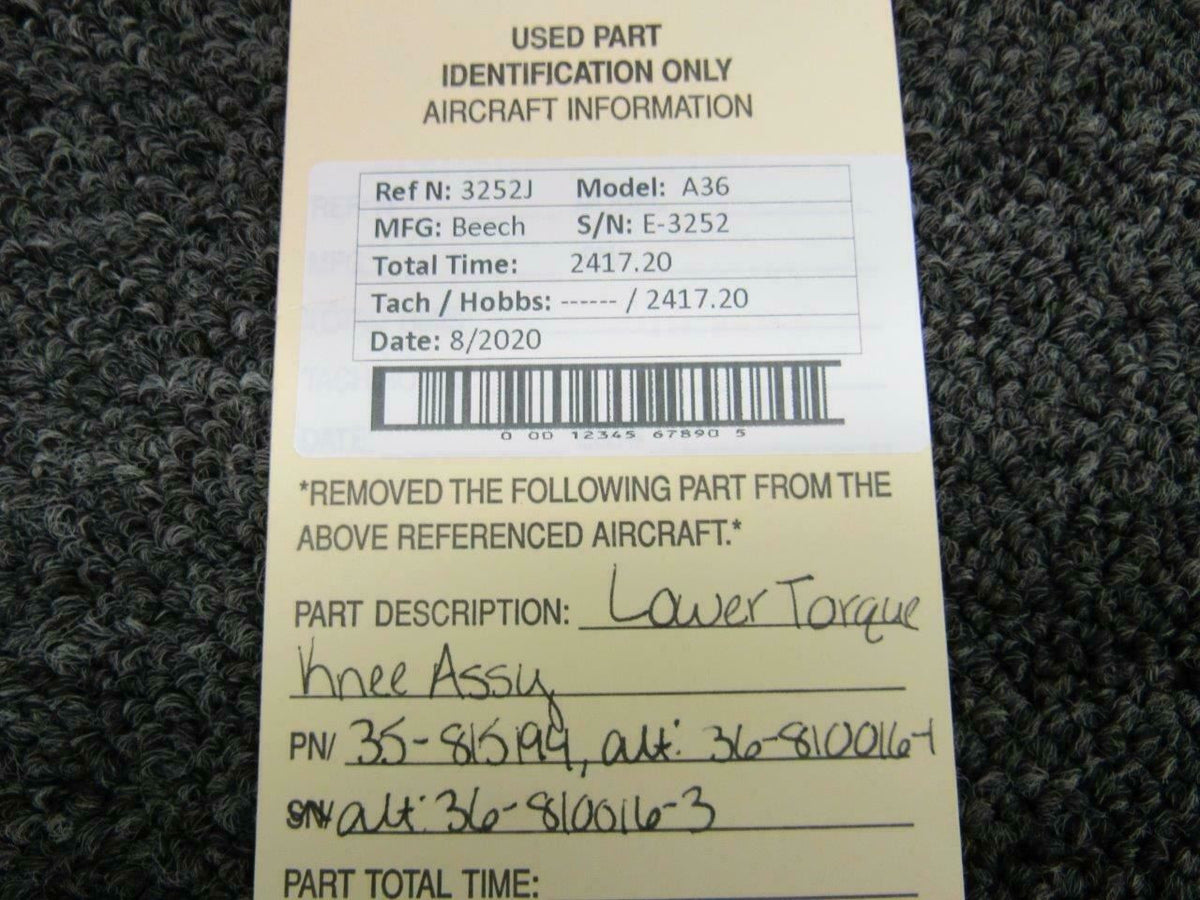 USED PART
IDENTIFICATION ONLY
AIRCRAFT INFORMATION
Ref N: 3252J Model: A36
MFG: Beech S/N: E-3252
Total Time: 2417.20
Tach / Hobbs: ------ / 2417.20
Date: 8/2020
0 00 12345 67890 5
*REMOVED THE FOLLOWING PART FROM THE
ABOVE REFERENCED AIRCRAFT.*
PART DESCRIPTION: Lower Torque
Knee Assy
PN/ 35-815199, alt: 36-810016-1
SN/ alt: 36-810016-3
PART TOTAL TIME: